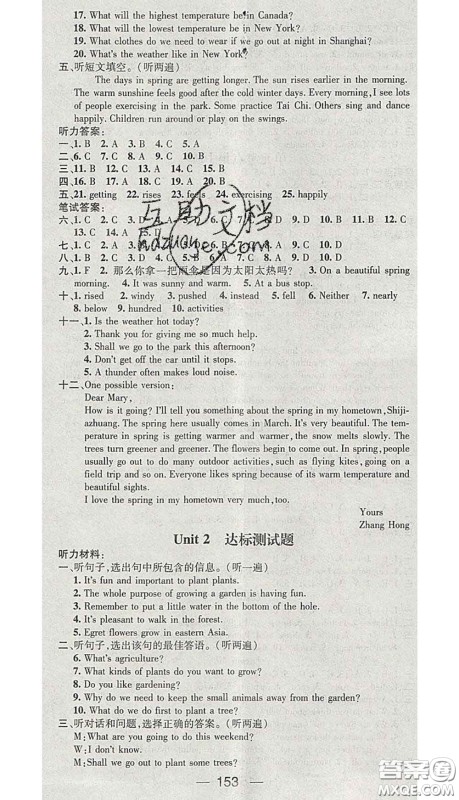 17. What will the highest temperature be in Canada?
18. What will the lowest temperature be in New York?
19. What clothes do we need to wear if we go out at night in Shanghai?
20. What's the weather like in New York?
五、听短文填空。(听两遍)
The days in spring are getting longer. The sun rises earlier in the morning.
The warm sunshine feels good after the cold winter days. Every morning, I see lots
of people exercising in the park. Some practice Tai Chi. Others sing and dance
happily. Children run around or play on the swings.
听力答案:
一、1. B 2. A 3. B 4. C 5. A
二、6. C 7. C 8. A 9. C 10. B
三、11. B 12. C 13. A 14. C 15. B
四、16. B 17. A 18. C 19. C 20. B
五、21. getting 22. rises 23. feels 24. exercising 25. happily
笔试答案:
六、1. C 2. D 3. A 4. C 5. 7. C 8. A 9. D 10. B 11. B 12. C
13. C 14. A 15.
七、1. C 2. B 3. A 8. A 9. C 10. D
八、1. B 2. C 3. 8. C 9. D 10. B
九、1. F 2. 那么你拿一把雨伞是因为太阳太热吗? 3. On a beautiful spring
morning. 4. It was sunny and warm. 5. At a bus stop.
十、1. rised 2. windy 3. pushed 4. instead 5. Neither 7. nearly
8. below 9. hundred 10. activities
十一、1. Is the weather hot today?
2. Thank you for giving me so much help.
3. Shall we go to the park this afternoon?
4. Don't get off the car until it stops.
5. A thunder often makes loud noise.
十二、One possible version:
Dear Mary,
How is it going? I'll tell you something about the spring in my hometown, Shiji-
azhuang. The spring here usually comes in March. It's very beautiful. The tem-
perature in spring is getting warmer and warmer, the snow melts slowly. The
trees turn greener and greener. The flowers begin to come out. In spring, people
usually go out to do many outdoor activities, such as flying kites, going on a
field trip and so on. Everyone likes spring because of its warm temperature and
beautiful sights.
I love the spring in my hometown very much, too.
Yours
Zhang Hong
Unit 2 达标测试题
听力材料:
一、听句子,选出句中所包含的信息。(听一遍)
1. It's fun and important to plant plants.
2. The whole purpose of growing a garden is having fun.
3. Remember to put a little water in the bottom of the hole.
4. It's pleasant to walk in the forest.
5. Egret flowers grow in eastern Asia.
二、听句子,选出该句的最佳答语。(听两遍)
6. What's agriculture?
7. What kinds of plants do you want to grow?
8. Do you like gardening?
9. Why do we need to keep the small animals away from the garden?
10. What do we need to plant a tree?
三、听对话和问题,选择正确的答案。(听两遍)
M: What are you going to do this weekend?
W: I don't know.
M: Shall we go out to plant some trees?
— 153 —
互助文档
答案圈
MXQE.COM